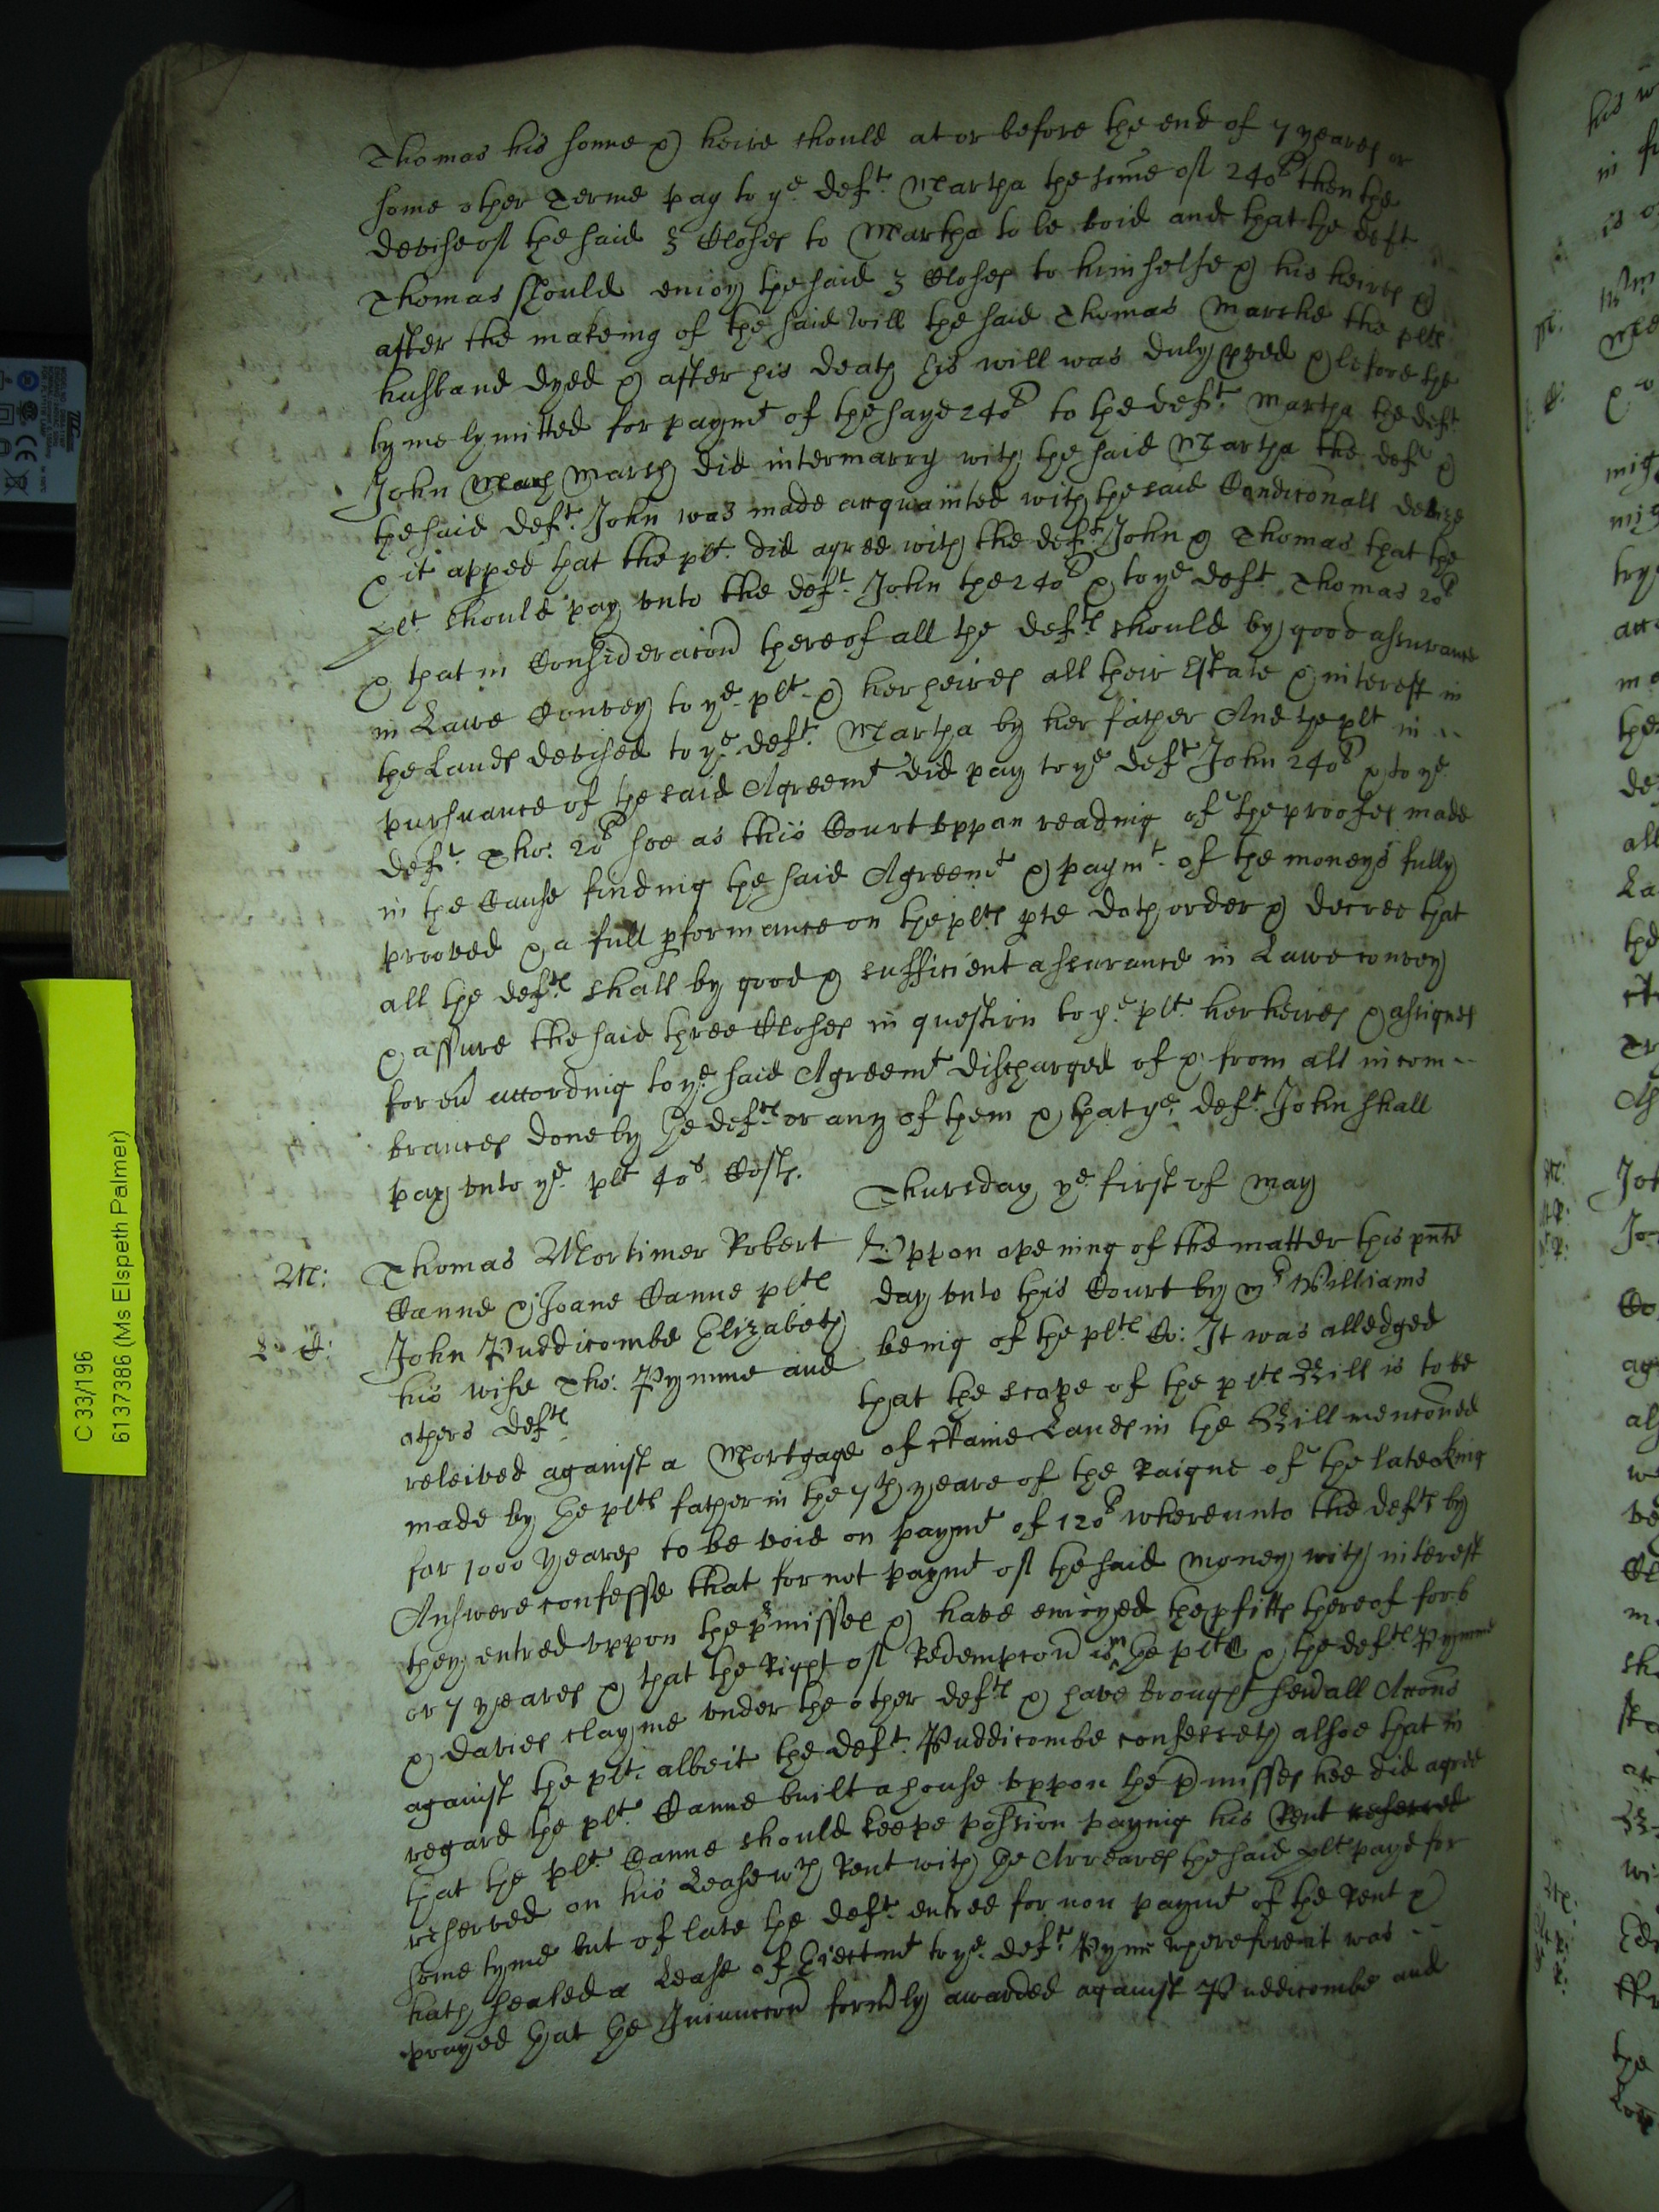 Thomas his sonne & heire should at or before the end of 7 yeares or
some other Terme pay to ye deft. Martha the some of 240li then the
devise of the said 3 Closes to Martha to be void and that the deft
Thomas should enioy the said 3 Closes to himselfe & his heires &
after the makeing of the said Will the said Thomas Marshe the plts
husband dyed & after his death his will was duly proved & before the
tyme lymitted for paymt of the saye 240li to the deft. Martha the deft
John Marsh did intermarry with the said Martha the deft &
the said deft. John was made acquainted with the said Condiconall devise
& it apped that the plt. did agree with the deft. John & Thomas that the
plt. should pay vnto the deft. John the 240li & to ye deft. Thomas 20li
& that in Consideracon thereof all the defts should by good assurance
in Lawe Convey to ye plt. & her heires all their Estate & interest in
the Lands devised to ye deft. Martha by her father And the plt in
pursuance of the said Agreemt did pay to ye deft John 240li & to ye
deft. Tho: 20li soe as this Court vppon reading of the proofes made
in the Cause finding the said Agreemt & paymt. of the moneys fully
prooved & a full pformance on the plts pte doth order & decree that
all the defts shall by good & sufficient assurance in Lawe convey
& assure the said three Closes in question to ye plt. her heires & assignes
for eu according to ye said Agreemt discharged of & from all incom-
brances done by the defts or any of them & that ye deft. John shall
pay vnto ye plt 40s. Costs.
Thursday ye first of May
M:
Thomas Mortimer Robert
Canne & Joane Canne plts
John Puddicombe Elizabeth
his wife Tho: Pymme and
others defts
Vppon opening of the matter this pnte
day vnto this Court by mr Williams
being of the plts Co: It was alledged
that the scope of the plts Bill is to be
releived against a Mortgage of Lands in the Bill menconed
made by the plts father in the 7th yeare of the Raigne of the late king
for 1000 yeares to be void on paymt of 120li whereunto the defts by
Answere confesse that for not paymt of the said money with interest
they entred vppon the pmisses & have enioyed the pfitts thereof for 6
or 7 yeares & that the Right of Redempcon is in the plts & the defts Pymme
& Davies clayme vnder the other defts & have brought seuall Accons
against the plt. albeit the deft. Puddicombe confesseth alsoe that in
regard the plt. Canne built a house vppon the pmisses hee did agree
that the plt. Canne should keepe possion paying his Rent
reserved on his Lease wch Rent with the Arreares the said plt paye for
some tyme but of late the deft. entred for non paymt of the Rent &
hath sealed a Lease of Eiectmt to ye deft. Pyme wherefore it was
prayed that the Iniunccon formly awarded against Puddicombe and
C 33/196
6137386 (Ms Elspeth Palmer)